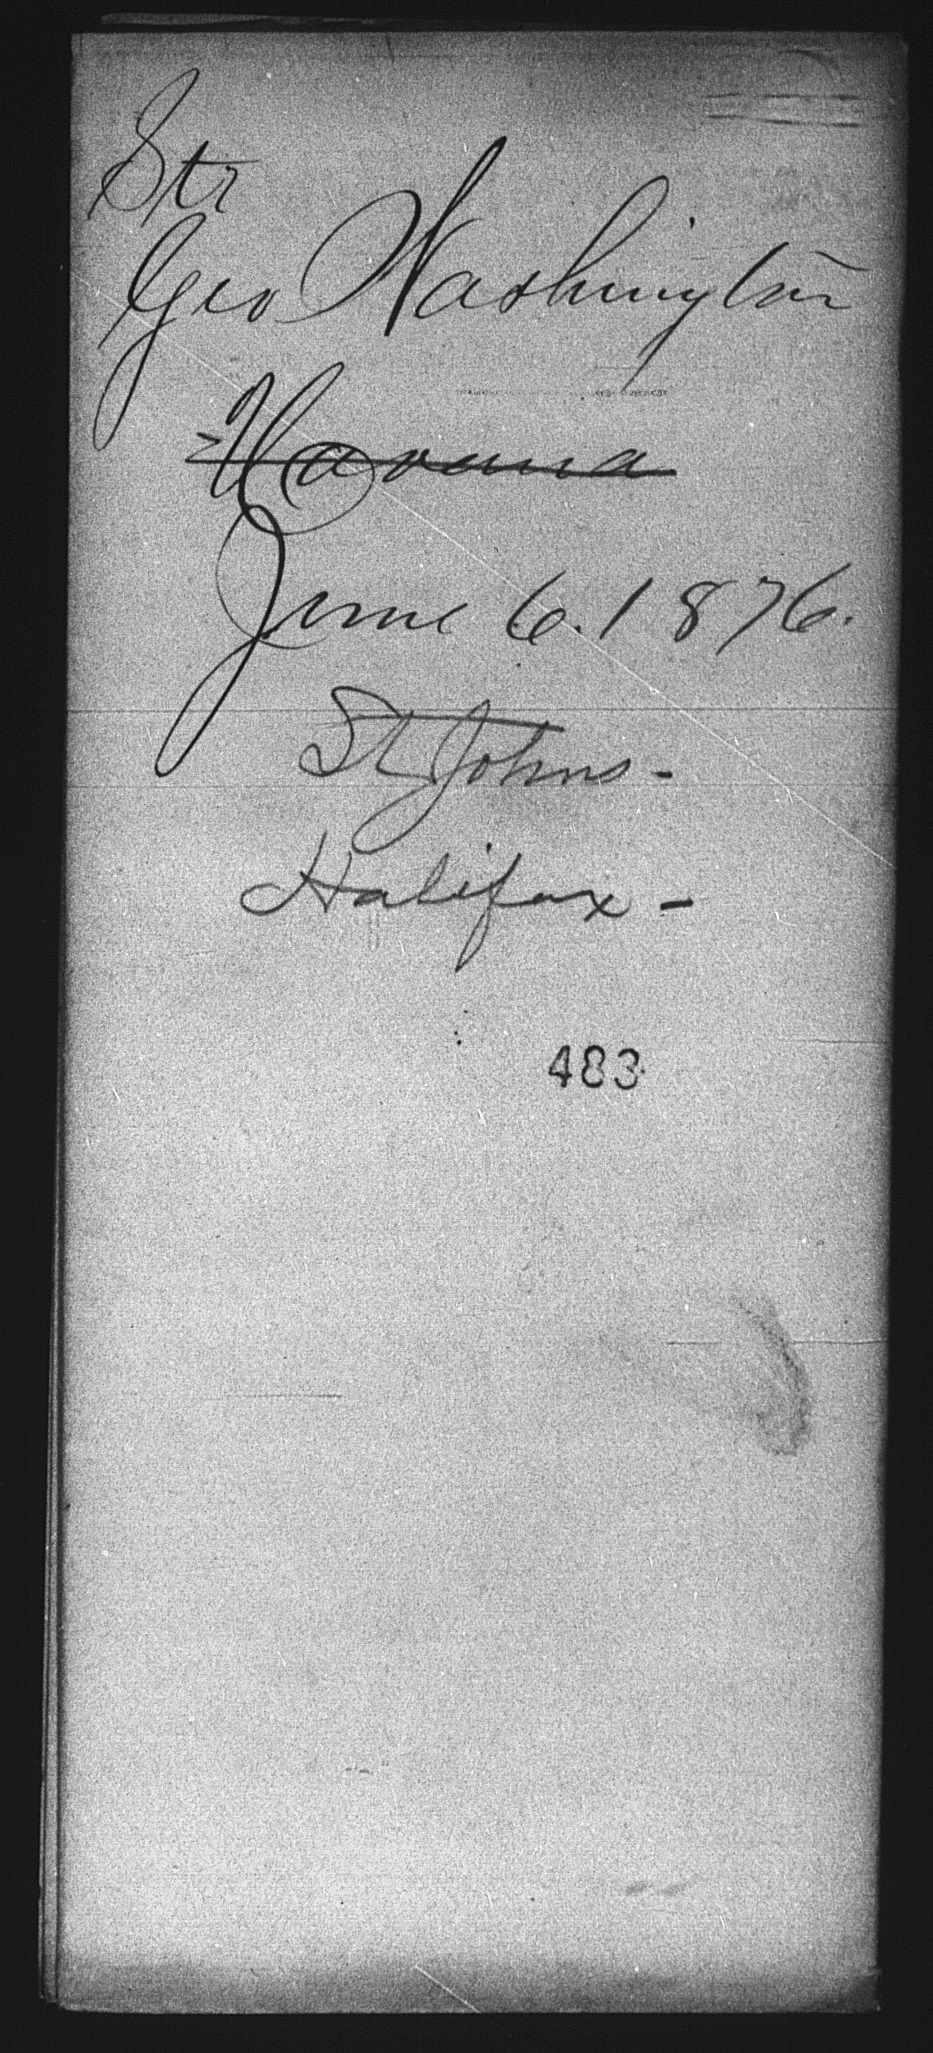 Str
Geo Washington
Havana
June 6. 1876.
St Johns-
Halifax-
483